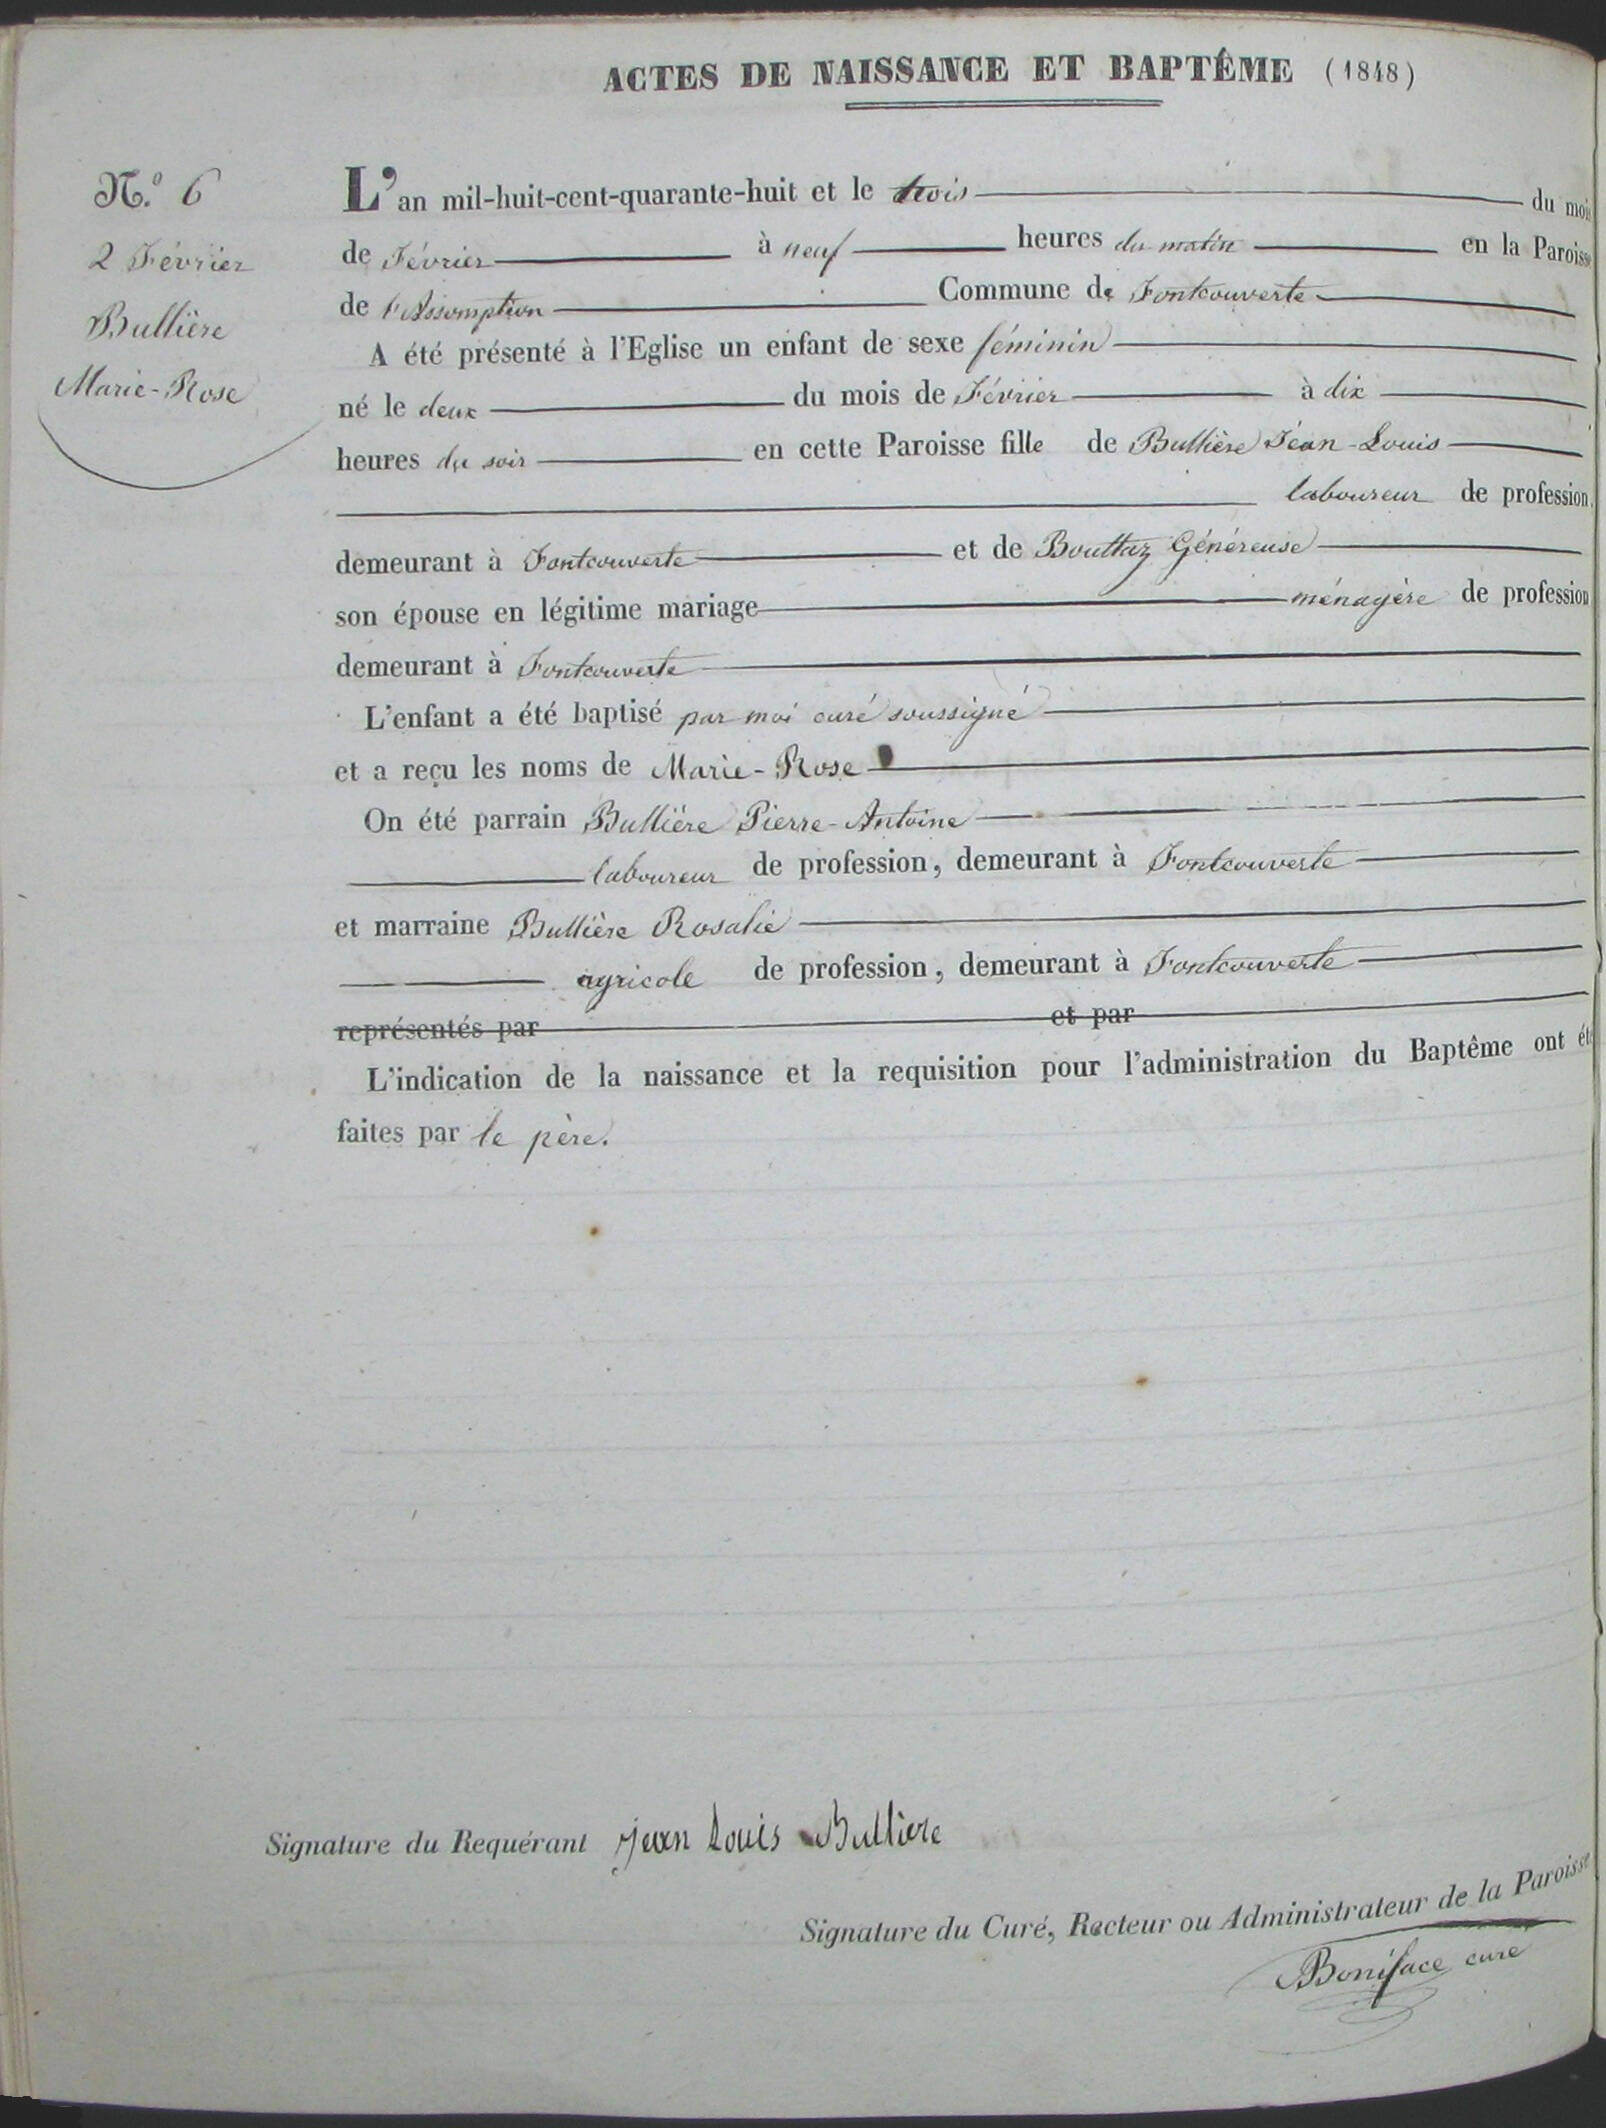 ACTES DE NAISSANCE ET BAPTÊME (1848)
N.º 6
2 Février
Bullière
Marie-Rose
L'an mil-huit-cent-quarante-huit et le trois du mois
de Février à neuf heures du matin en la Paroisse
de l'Assomption Commune de Fontcouverte
A été présenté à l'Eglise un enfant de sexe féminin
né le deux du mois de Février à dix
heures du soir en cette Paroisse fille de Bullière Jean-Louis
laboureur de profession,
demeurant à Fontcouverte et de Bouttaz Généreuse
son épouse en légitime mariage ménagère de profession
demeurant à Fontcouverte
L'enfant a été baptisé par moi curé soussigné
et a reçu les noms de Marie-Rose
On été parrain Bullière Pierre-Antoine
laboureur de profession, demeurant à Fontcouverte
et marraine Bullière Rosalie
agricole de profession, demeurant à Fontcouverte
représentés par et par
L'indication de la naissance et la requisition pour l'administration du Baptême ont été
faites par le père.
Signature du Requérant Jean Louis Bulliere
Signature du Curé, Recteur ou Administrateur de la Paroisse
Boniface curé